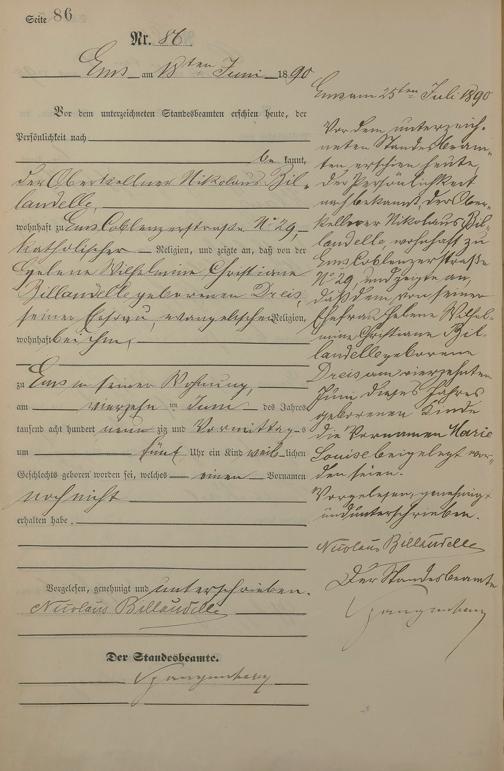 Seite 86
Nr. 86.
Ems am 18ten Juni 1890
Vor dem unterzeichneten Standesbeamten erschien heute, der
Persönlichkeit nach
be kannt,
der Oberkellner Nikolaus Bil-
landelle,
wohnhaft zu Ems Coblenzerstraße No 29,
katholischer Religion, und zeigte an, daß von der
Helene Wilhelmine Christiane
Billandelle geborenen Dreis,
seiner Ehefrau, evangelischer Religion,
wohnhaft bei ihm,
zu Ems in seiner Wohnung,
am vierzehn ten Juni des Jahres
tausend acht hundert neun zig und Vormittags
um fünf Uhr ein Kind weib lichen
Geschlechts geboren worden sei, welches einen Vornamen
noch nicht
erhalten habe.
Vorgelesen, genehmigt und unterschrieben.
Nicolaus Billaudelle
Der Standesbeamte.
Ems am 25ten Juli 1890
Vor dem unterzeich-
neten Standesbeam-
ten erschien heute,
der Persönlichkeit
nach bekannt, der Ober-
kellner Nikolaus Bil-
landelle, wohnhaft zu
Ems Coblenzerstraße
No 29, und zeigte an,
daß dem von seiner
Ehefrau Helene Wilhel-
mine Christiane Bil-
landelle geborene
Dreis am vierzehnten
Juni dieses Jahres
geborenen Kinde
die Vornamen Marie
Louise beigelegt wor-
den seien.
Vorgelesen, genehmigt
und unterschrieben.
Nicolaus Billaudelle
Der Standesbeamte